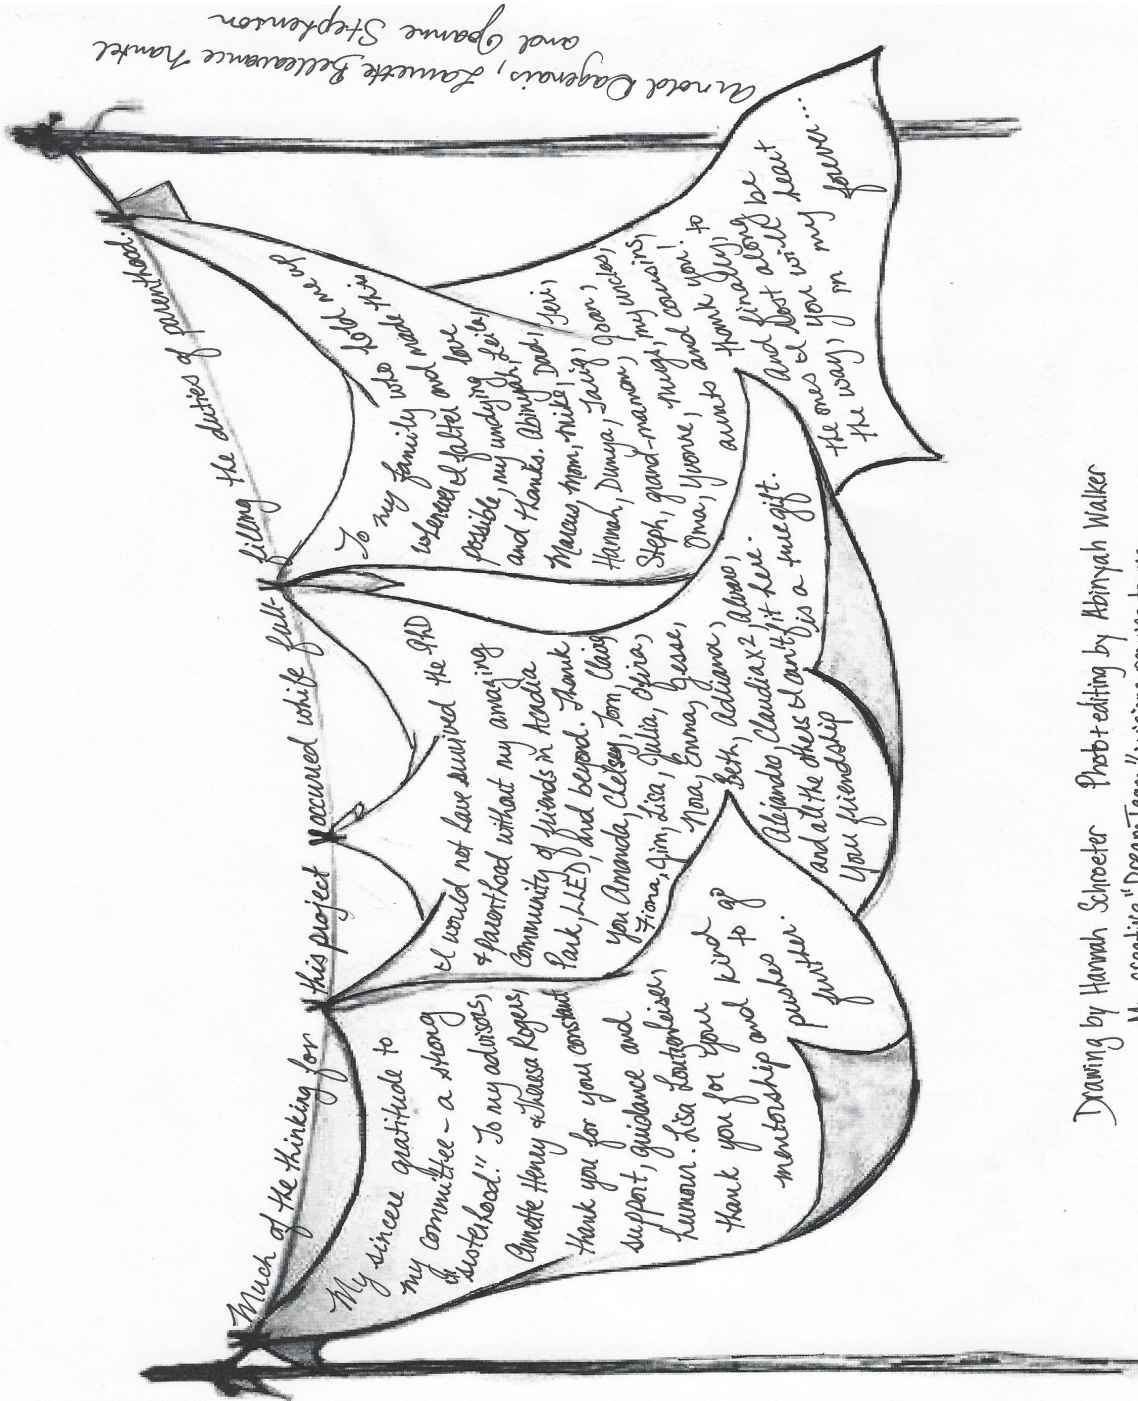 Much of the thinking for this project occurred while full-filling the duties of parenthood.
My sincere gratitude to
my committee - a strong
"sisterhood." To my advisors,
Annette Henry & Theresa Rogers,
thank you for your constant
support, guidance and
humour. Lisa Loutzenheiser,
thank you for your kind
mentorship and
pushes to go
further.
I would not have survived the PhD
& parenthood without my amazing
community of friends in Acadia
Park, LLED, and beyond. Thank
you Amanda, Chelsey, Tom, Claire,
Fiona, Jim, Lisa, Julia, Ofira,
Nora, Emma, Jesse,
Beth, Adriana, Alvaro,
Alejandro, Claudia x2,
and all the others I can't fit here.
Your friendship is a true gift.
To my family who hold me up
whenever I falter and made this
possible, my undying love
and thanks. Abinyah, Leila,
Marcus, Mom, Mike, Dad, Teri,
Hannah, Dunya,
Steph, grand-maman, Joan,
Oma, Yvonne, my uncles,
aunts and cousins,
thank you.
And finally, to
the ones I lost along
the way, you will be
in my heart
forever...
Arnold Dagenais, Laurette Bellavance
and Joanne Stephenson
Drawing by Hannah Schroeter Photo editing by Abinyah Walker